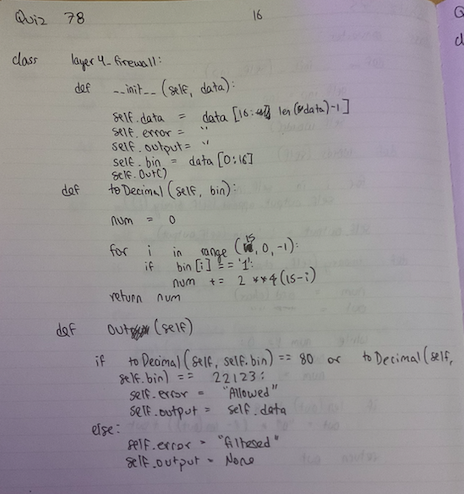 Quiz 78
16
class layer4_firewall:
def __init__(self, data):
self.data = data[16: len(data)-1]
self.error = ''
self.output = ''
self.bin = data[0:16]
self.out()
def toDecimal(self, bin):
num = 0
for i in range (15, 0, -1):
if bin[i] == '1':
num += 2 **(15-i)
return num
def out (self)
if toDecimal(self, self.bin) == 80 or toDecimal(self,
self.bin) == 22123:
self.error = "Allowed"
self.output = self.data
else:
self.error = "Altered"
self.output = None